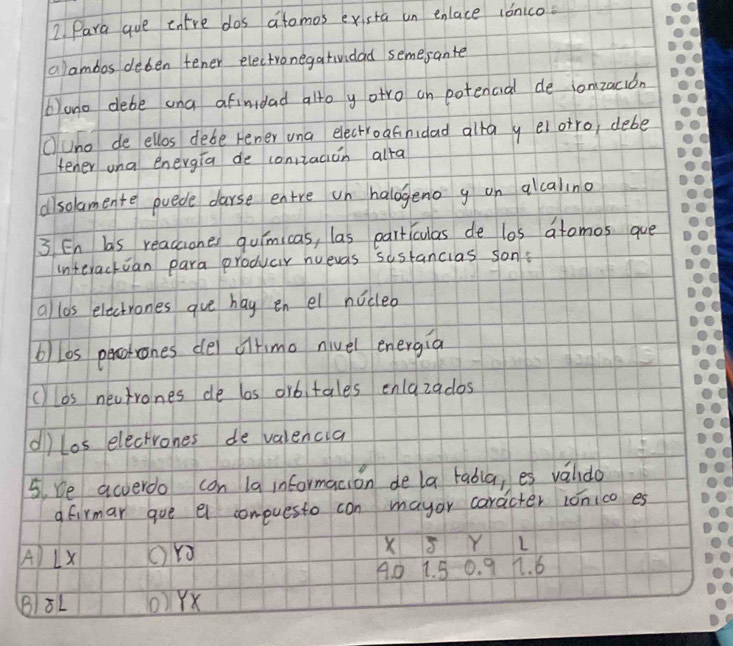 2. Para que entre dos átomos exista un enlace iónico:
a) ambos deben tener electronegatividad semejante
b) uno debe una afinidad alto y otro un potencial de ionización
c) Uno de ellos debe tener una electroafinidad alta y el otro, debe
tener una energía de conización alta
d) solamente puede darse entre un halógeno y un alcalino
3. En las reacciones químicas, las partículas de los átomos que
interactúan para producir nuevas sustancias son:
a) los electrones que hay en el núcleo
b) los protrones del último nivel energía
c) los neutrones de los orbitales enlazados
d) Los electrones de valencia
5. De acuerdo con la información de la tabla, es válido
afirmar que el compuesto con mayor carácter iónico es
A) LX C) YJ X J Y L
4.0 1.5 0.9 1.6
B) JL D) YX